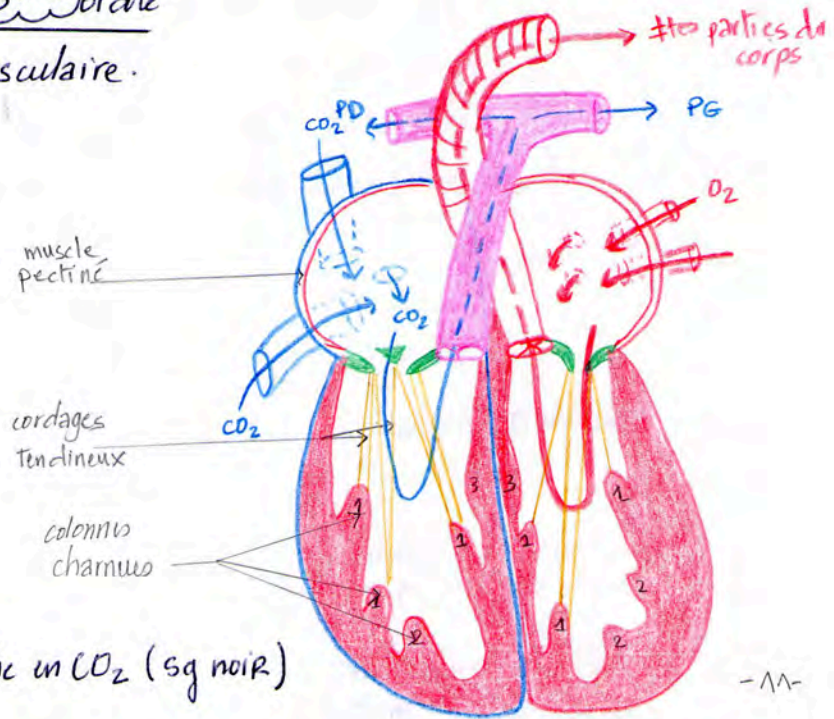 sculaire.
≠tes parties du
corps
PD
PG
CO₂
O₂
muscle
pectiné
CO₂
CO₂
cordages
tendineux
3
3
1
1
1
1
colonnes
charnues
1
1
2
2
2
en CO₂ (sg noir)
-11-